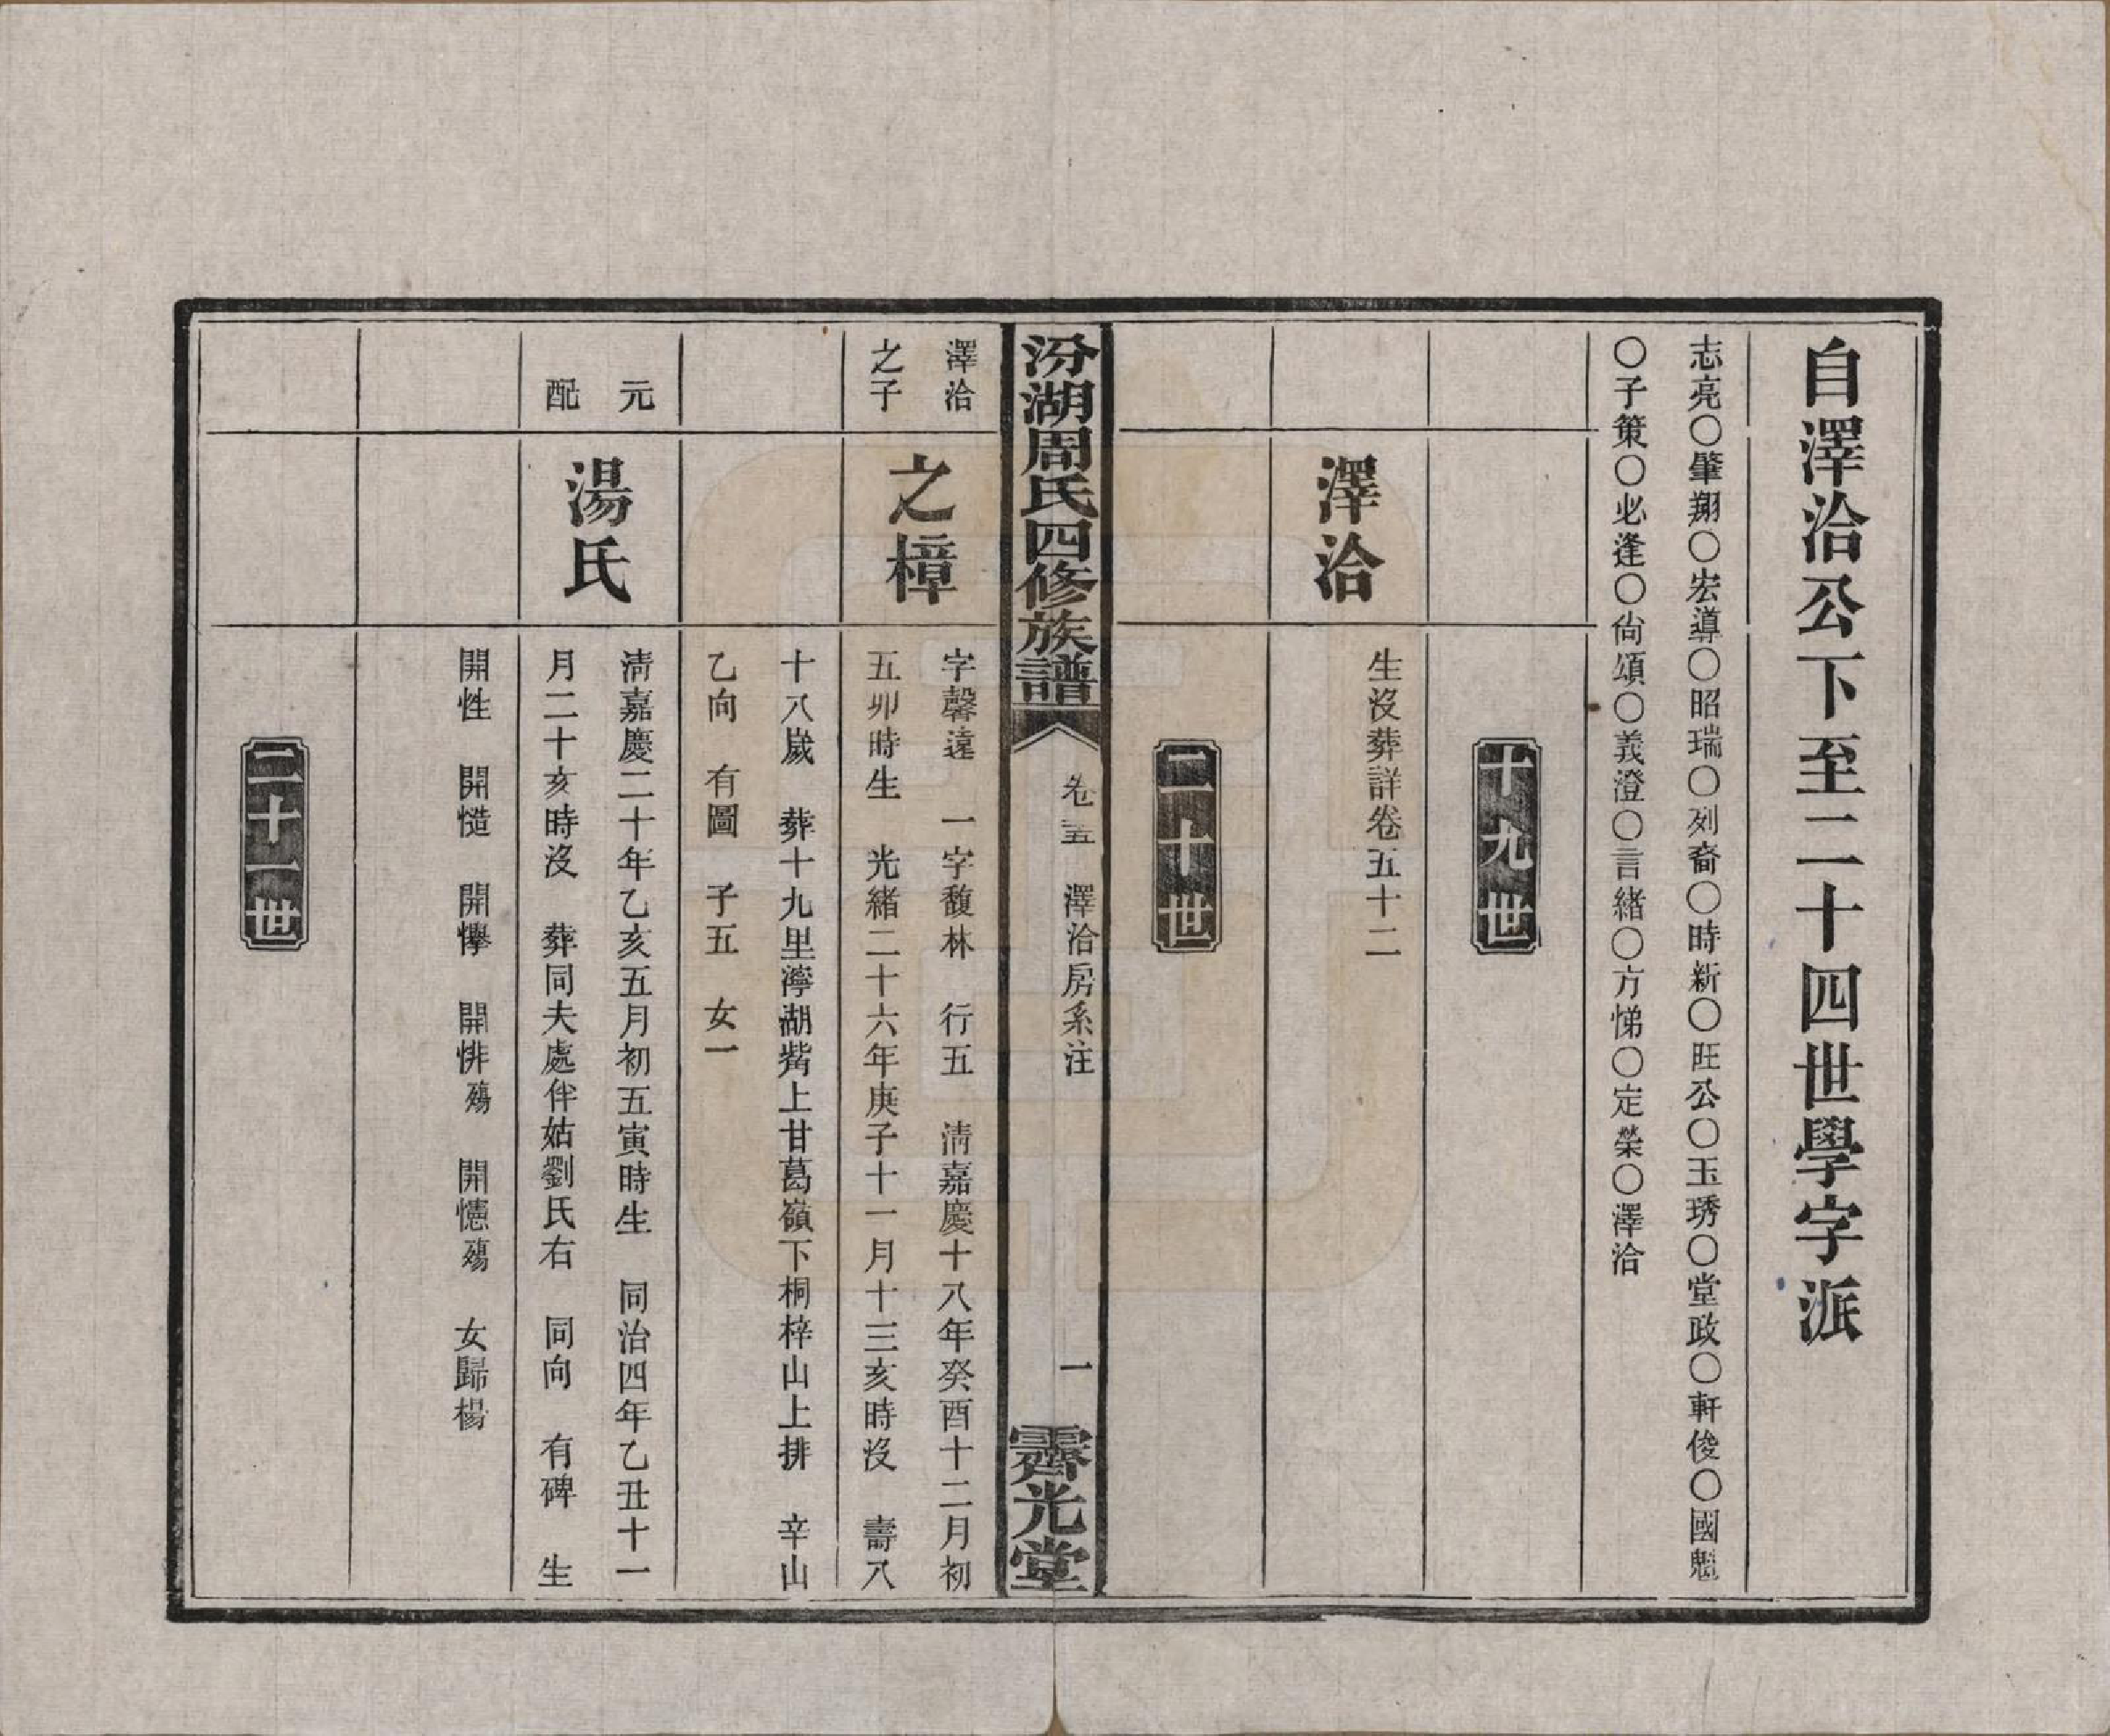 自澤洽公下至二十四世學字派
志亮〇肇翔〇宏導〇昭瑞〇列裔〇時新〇旺公〇玉琇〇堂政〇軒俊〇國魁
〇子策〇必逢〇尙頌〇義澄〇言緒〇方悌〇定榮〇澤洽
十九世
澤洽
生沒葬詳卷五十二
二十世
汾湖周氏四修族譜
卷五
澤洽房系注
一
霽光堂
澤洽
之子
之樟
字馨遠 一字馥林 行五 淸嘉慶十八年癸酉十二月初
五卯時生 光緒二十六年庚子十一月十三亥時沒 壽八
十八歲 葬十九里濘湖觜上甘葛嶺下桐梓山上排 辛山
乙向 有圖 子五 女一
元
配
湯氏
淸嘉慶二十年乙亥五月初五寅時生 同治四年乙丑十一
月二十亥時沒 葬同夫處伴姑劉氏右 同向 有碑 生
開性 開慥 開懽 開悱殤 開憓殤 女歸楊
二十一世